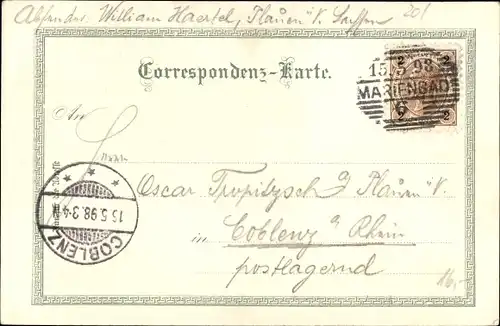 Absender: William Haertel, Plauen i/V. Sachsen
201
Correspondenz-Karte.
2 2
15/5 98
MARIENBAD
6
2 2
An
Oscar Tropitzsch a/ Plauen i/V.
in Coblenz a/ Rhein
postlagernd
16,-
15.5.98.3-4N
COBLENZ